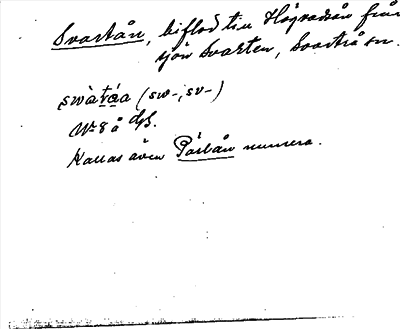 Svartån, biflod till Högvadsån från
sjön Svarten, Svartrå sn.
swàtáa (sw-, sv-)
Nr 8 å ds.
Kallas även Pärlån numera.